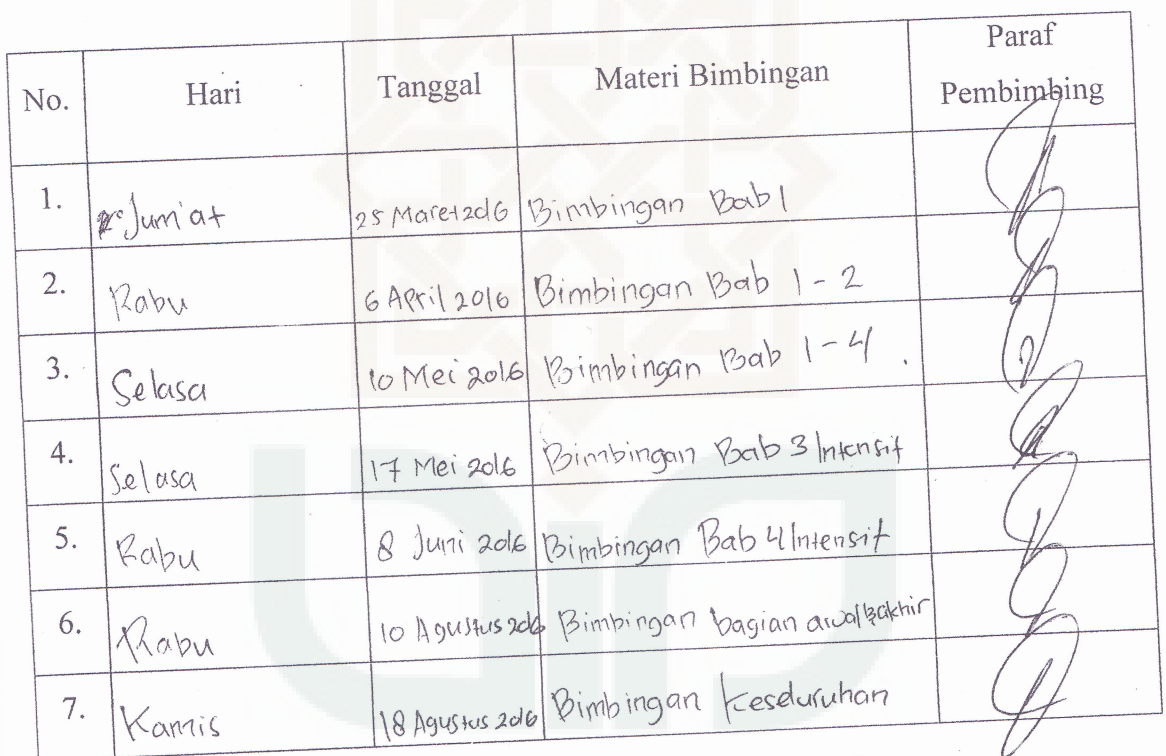 No. Hari Tanggal Materi Bimbingan Paraf Pembimbing
1. Jum'at 25 Maret 2016 Bimbingan Bab 1
2. Rabu 6 April 2016 Bimbingan Bab 1 - 2
3. Selasa 10 Mei 2016 Bimbingan Bab 1 - 4 .
4. Selasa 17 Mei 2016 Bimbingan Bab 3 Intensif
5. Rabu 8 Juni 2016 Bimbingan Bab 4 Intensif
6. Rabu 10 Agustus 2016 Bimbingan bagian awal & akhir
7. Kamis 18 Agustus 2016 Bimbingan Keseluruhan